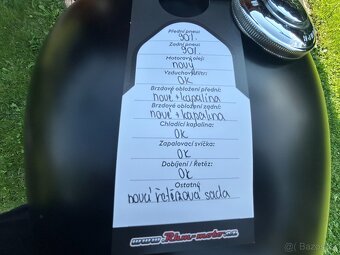 Přední pneu:
90%
Zadní pneu:
90%
Motorový olej:
nový
Vzduchový filtr:
OK
Brzdové obložení přední:
nové + kapalina
Brzdové obložení zadní:
nové + kapalina
Chladící kapalina:
OK
Zapalovací svíčka:
OK
Dobíjení / Řetěz:
OK
Ostatní:
nová řetězová sada